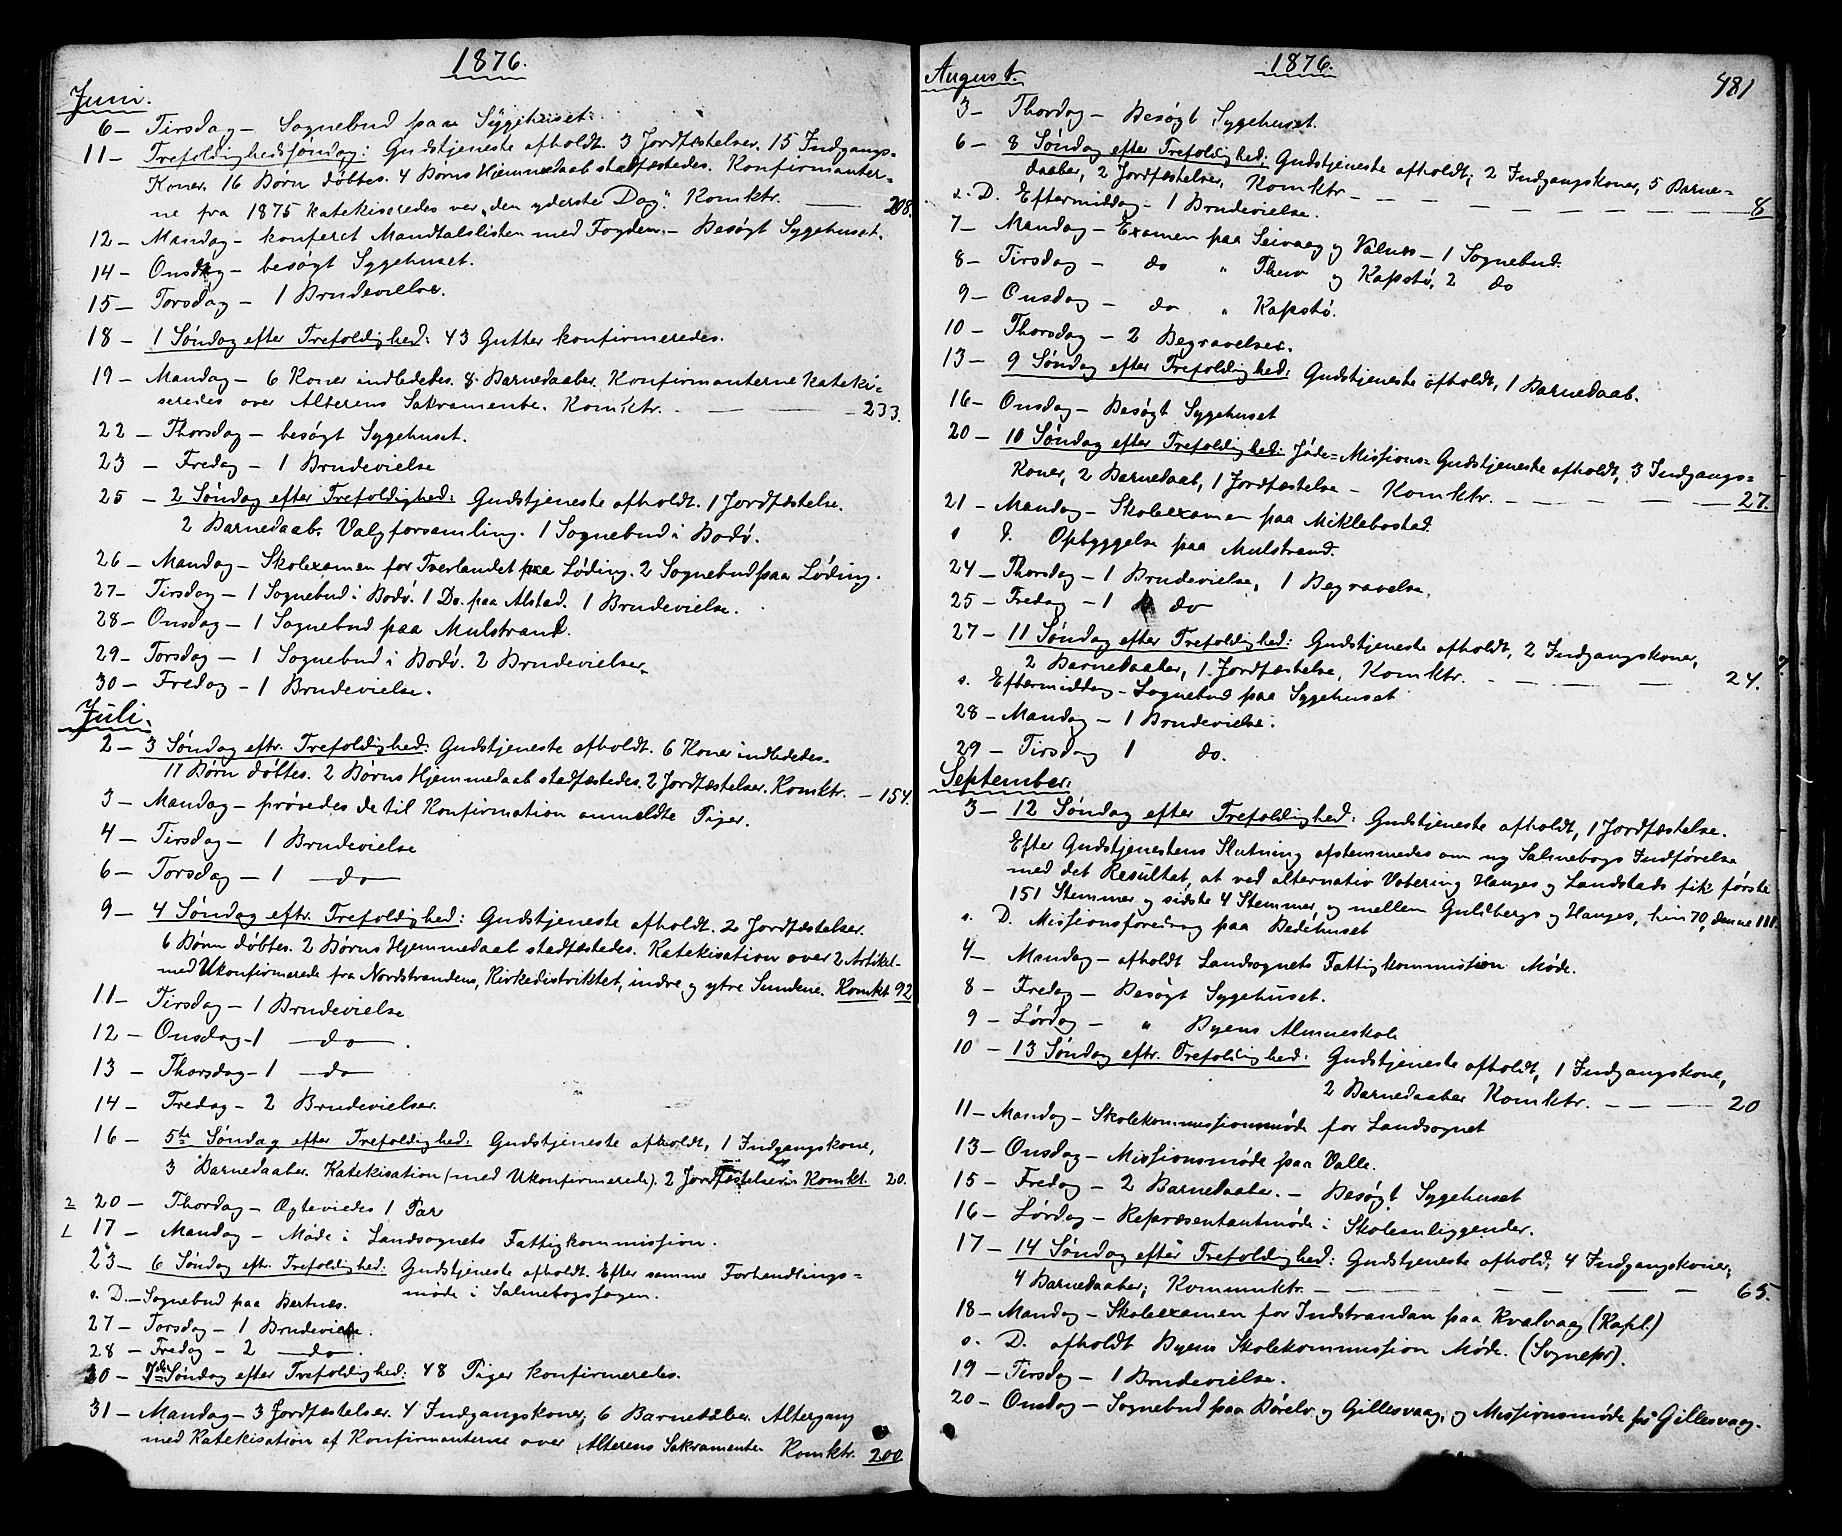 1876.
Juni.
6 – Tirsdag – Sognebud paa Sygehuset.
11 – Trefoldighedssøndag: Gudstjeneste afholdt. 3 Jordfæstelser. 15 Indgangs-
Koner. 16 Børn døbtes. 4 Børns Hjemmedaab stadfæstedes. Konfirmanter-
ne fra 1875 katekiseredes over „den yderste Dag". Komktr. — 208.
12 – Mandag – konferet Mandtalslisten med Fogden. – Besøgt Sygehuset.
14 – Onsdag – besøgt Sygehuset.
15 – Torsdag – 1 Brudevielse.
18 – 1 Søndag efter Trefoldighed: 43 Gutter konfirmeredes.
19 – Mandag – 6 Koner indlededes. 8 Barnedaaber. Konfirmanterne kateki-
seredes over Alterens Sakramente. Komktr. — — — 233.
22 – Thorsdag – besøgt Sygehuset.
23 – Fredag – 1 Brudevielse
25 – 2 Søndag efter Trefoldighed: Gudstjeneste afholdt. 1 Jordfæstelse.
2 Barnedaab. Valgforsamling. 1 Sognebud i Bodø.
26 – Mandag – Skolexamen for Tverlandet paa Løding. 2 Sognebud paa Løding.
27 – Tirsdag – 1 Sognebud i Bodø. 1 Do. paa Alstad. 1 Brudevielse.
28 – Onsdag – 1 Sognebud paa Mulstrand.
29 – Torsdag – 1 Sognebud i Bodø. 2 Brudevielser.
30 – Fredag – 1 Brudevielse.
Juli.
2 – 3 Søndag eftr. Trefoldighed: Gudstjeneste afholdt. 6 Koner indlededes.
11 Børn døbtes. 2 Børns Hjemmedaab stadfæstedes. 2 Jordfæstelser. Komktr. – 154.
3 – Mandag – prøvedes de til Konfirmation anmeldte Piger.
4 – Tirsdag – 1 Brudevielse
6 – Torsdag – 1 — do —
9 – 4 Søndag eftr. Trefoldighed: Gudstjeneste afholdt. 2 Jordfæstelser.
6 Børn døbtes. 2 Børns Hjemmedaab stadfæstedes. Katekisation over 2 Artikel-
med Ukonfirmerede fra Nordstrandens, Kirkedistriktet, indre og ytre Sundene. Komkt 92
11 – Tirsdag – 1 Brudevielse
12 – Onsdag – 1 — do —.
13 – Thorsdag – 1 — do —
14 – Fredag – 2 Brudevielser.
16 – 5te Søndag efter Trefoldighed: Gudstjeneste afholdt, 1 Indgangskone,
3 Barnedaaber. Katekisation (med Ukonfirmerede). 2 Jordfæstelser. Komkt. 20.
2 20 – Thordag – Ægteviedes 1 Par
1 17 – Mandag – Møde i Landsognets Fattigkommission.
23 – 6 Søndag eftr. Trefoldighed: Gudstjeneste afholdt. Efter samme Forhandlings=
møde i Salmebogssagen.
s. D. – Sognebud paa Bertnes.
27 – Torsdag – 1 Brudevielse.
28 – Fredag – 2 — do —.
30 – 7de Søndag efter Trefoldighed: 48 Piger konfirmeredes.
31 – Mandag – 3 Jordfæstelser. 4 Indgangskoner, 6 Barnedåber. Altergang
med Katekisation af Konfirmanterne over Alterens Sakramente. Komktr. 200
1876. 481
August.
3 – Thordag – Besøgt Sygehuset.
6 – 8 Søndag efter Trefoldighed: Gudstjeneste afholdt; 2 Indgangskoner, 5 Barne=
daaber, 2 Jordfæstelser. Komktr. — — — — — — 8
s. D. Eftermiddag – 1 Brudevielse.
7 – Mandag – Examen paa Seivaag og Valnes – 1 Sognebud.
8 – Tirsdag – do " og Kapstø, 2 do
9 – Onsdag – do " Kapstø.
10 – Thorsdag – 2 Begravelser.
13 – 9 Søndag efter Trefoldighed: Gudstjeneste afholdt, 1 Barnedaab.
16 – Onsdag – Besøgt Sygehuset
20 – 10 Søndag efter Trefoldighed: Jøde=Missions=Gudstjeneste afholdt, 3 Indgangs=
Koner, 2 Barnedaab, 1 Jordfæstelse – Komktr. — — — — 27.
21 – Mandag – Skoleexamen paa Miklebostad.
s D. Opbyggelse paa Mulstrand.
24 – Thorsdag – 1 Brudevielse, 1 Begravelse.
25 – Fredag – 1 do
27 – 11 Søndag efter Trefoldighed: Gudstjeneste afholdt, 2 Indgangskoner,
2 Barnedaaber, 1 Jordfæstelse, Komktr. — — — — 24.
s. Eftermiddag – Sognebud paa Sygehuset
28 – Mandag – 1 Brudevielse.
29 – Tirsdag 1 do.
September.
3 – 12 Søndag efter Trefoldighed: Gudstjeneste afholdt, 1 Jordfæstelse.
Efter Gudstjenestens Slutning afstemmedes om ny Salmebogs Indførelse
med det Resultat, at ved alternativ Votering Hauges og Landstads fik første
151 Stemmer og sidste 4 Stemmer, og mellem Guldbergs og Hauges, hin 70, denne 111.
s. D. Missionsforedrag paa Bedehuset
4 – Mandag – afholdt Landsognets Fattigkommission Møde.
8 – Fredag – Besøgt Sygehuset.
9 – Lørdag – " Byens Almueskole
10 – 13 Søndag eftr. Trefoldighed: Gudstjeneste afholdt, 1 Indgangskone,
2 Barnedaaber Komktr. — — — 20
11 – Mandag – Skolekommissionsmøde for Landsognet
13 – Onsdag – Missionsmøde paa Valle.
15 – Fredag – 2 Barnedaaber. – Besøgt Sygehuset
16 – Lørdag – Repræsentantmøde i Skoleanliggender.
17 – 14 Søndag efter Trefoldighed: Gudstjeneste afhold, 4 Indgangskoner,
4 Barnedaaber, Kommunktr. — — — — — 65.
18 – Mandag – Skoleexamen for Indstrandan paa Kvalvaag (Kapl.)
s. D. afholdt Byens Skolekommission Møde. (Sognepr).
19 – Tirsdag – 1 Brudevielse.
20 – Onsdag – Sognebud paa Børelv og Gillesvaag, og Missionsmøde på Gillesvaag.